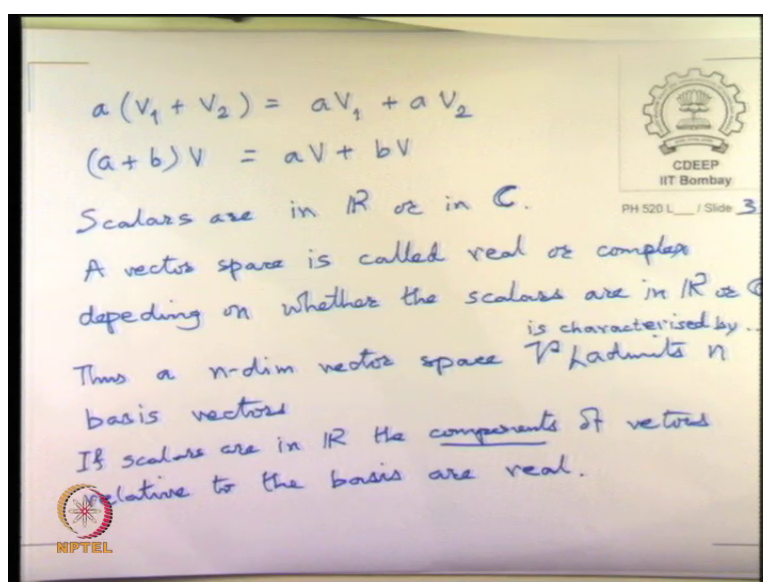 a (V₁ + V₂) = aV₁ + a V₂
(a + b) V = aV + bV
CDEEP
IIT Bombay
Scalars are in ℝ or in C.
PH 520 L___ / Slide 3
A vector space is called real or complex
depeding on whether the scalars are in ℝ or C
is characterised by ..
Thus a n-dim vector space V admits n
basis vectors
If scalars are in ℝ the components of vectors
relative to the basis are real.
NPTEL